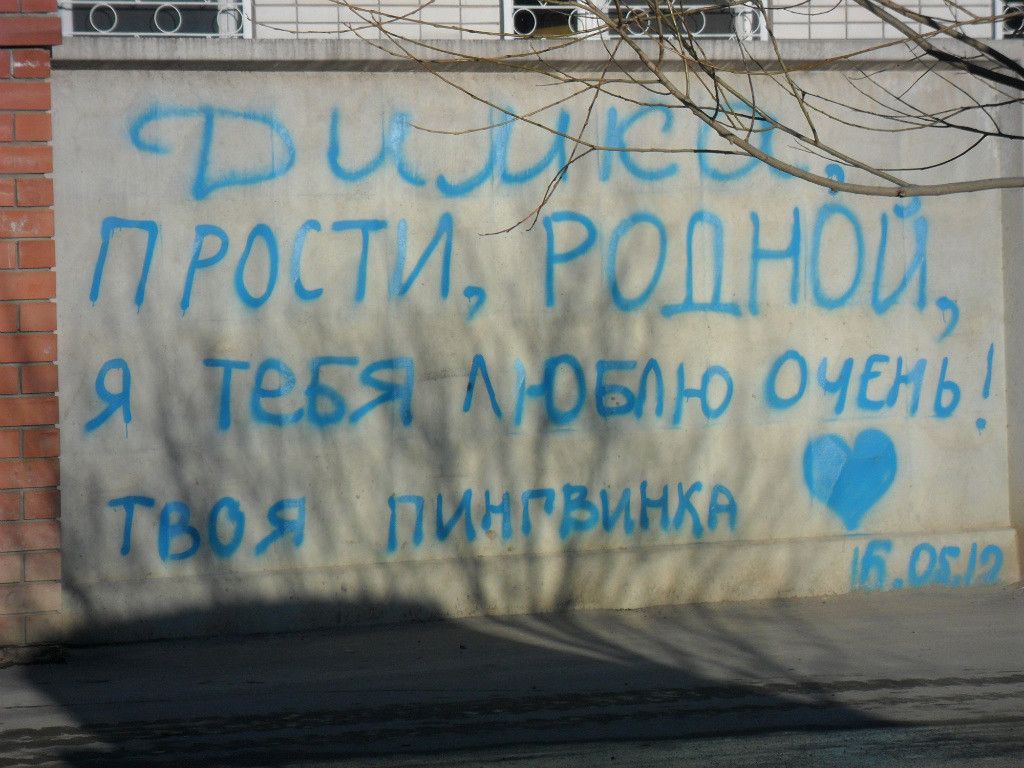 Димка,
ПРОСТИ, РОДНОЙ,
Я ТЕБЯ ЛЮБЛЮ ОЧЕНЬ!
ТВОЯ ПИНГВИНКА
16.05.12